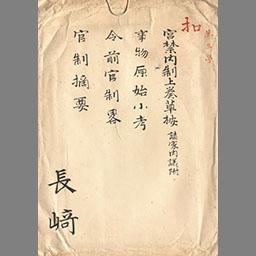 和
宮禁内制上奏草按 諸家内談附
事物原始小考
令前官制畧
官制摘要
長﨑